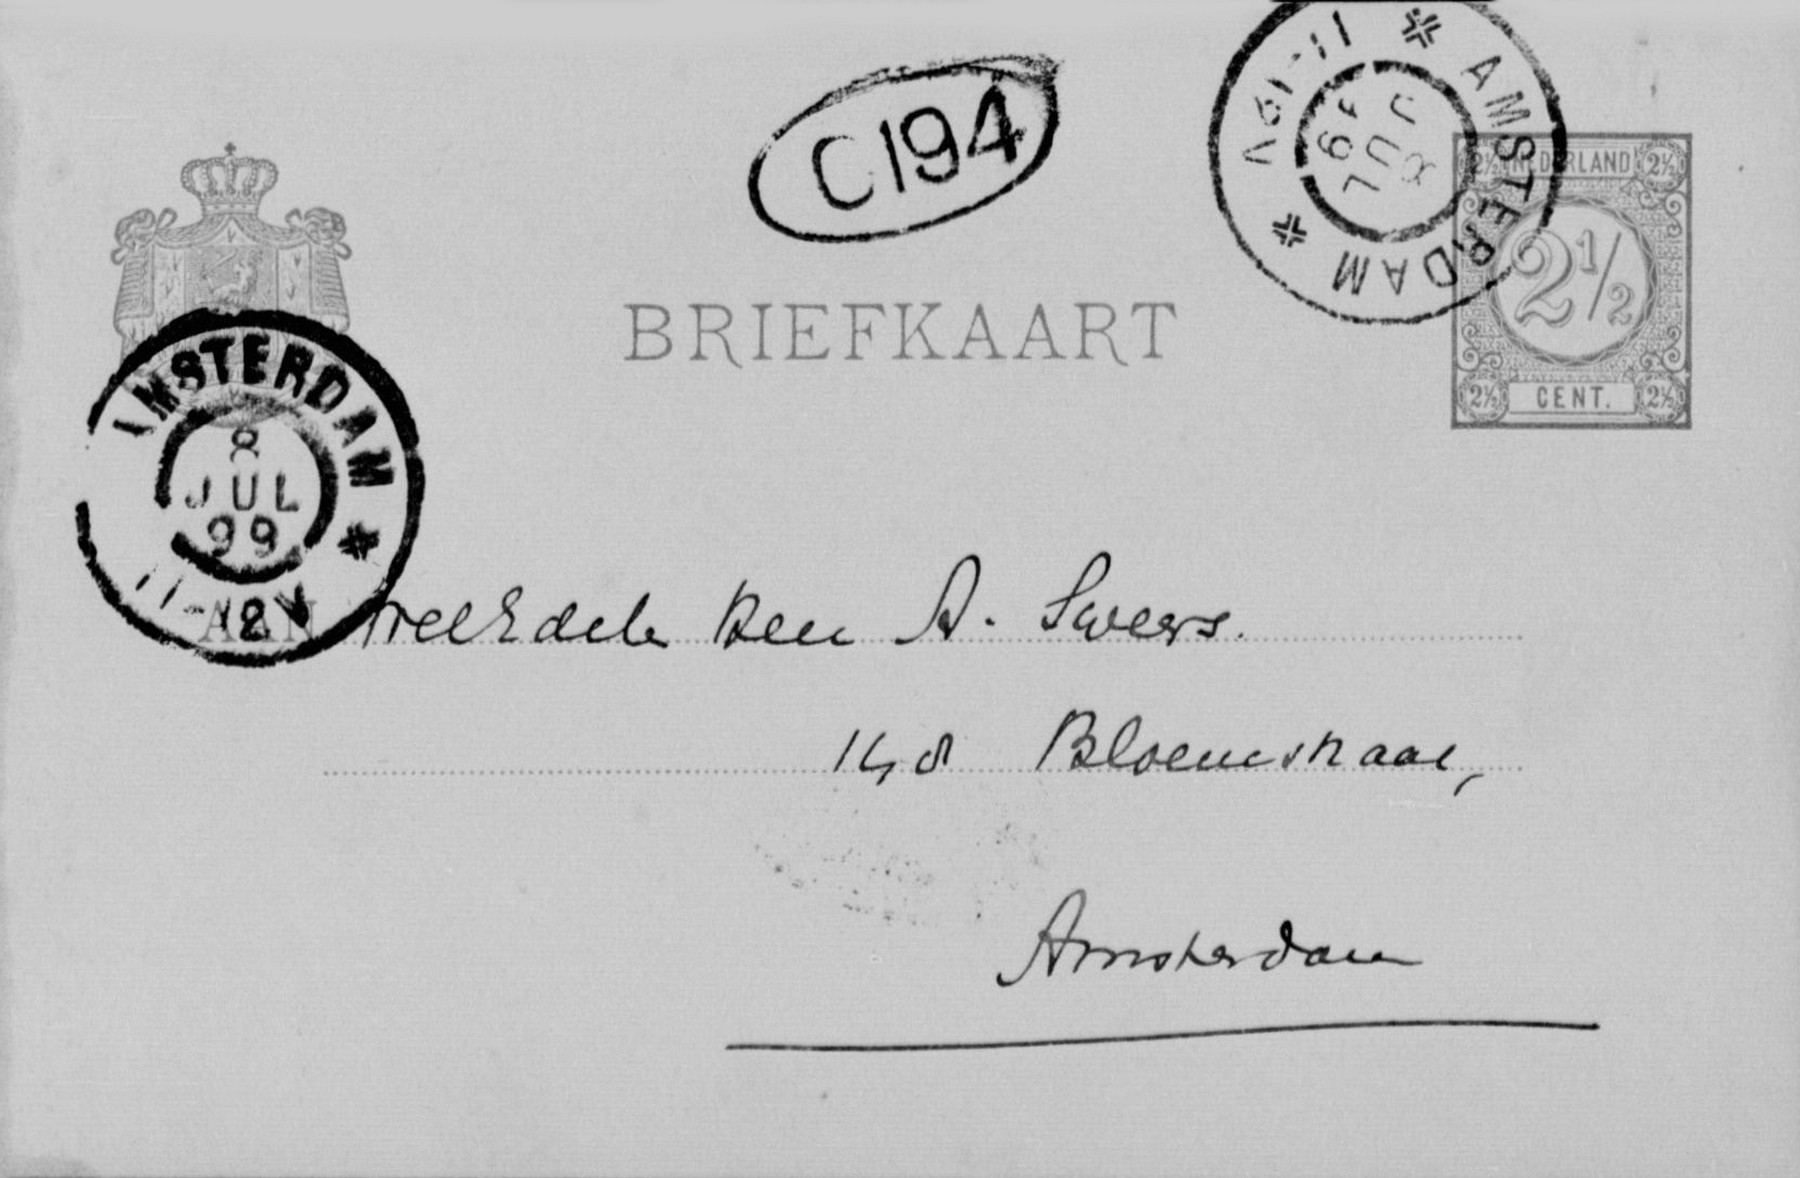 C194
AMSTERDAM
8
JUL
99
11-12V
NEDERLAND
2½ 2½
2½
2½ CENT. 2½
BRIEFKAART
AMSTERDAM
8
JUL
99
11-12V
AAN WelEdele Heer A. Sweers.
148 Bloemstraat,
Amsterdam